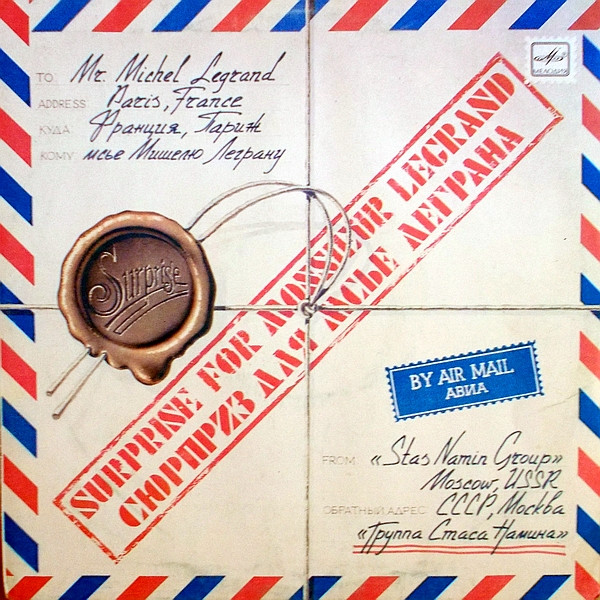 TO: Mr. Michel Legrand
ADDRESS: Paris, France
КУДА: Франция, Париж
КОМУ: мсье Мишелю Леграну
МЕЛОДИЯ
Surprise
SURPRISE FOR MONSIEUR LEGRAND
СЮРПРИЗ ДЛЯ МСЬЕ ЛЕГРАНА
BY AIR MAIL
АВИА
FROM: «Stas Namin Group»
Moscow, USSR
ОБРАТНЫЙ АДРЕС: СССР, Москва
«Группа Стаса Намина»